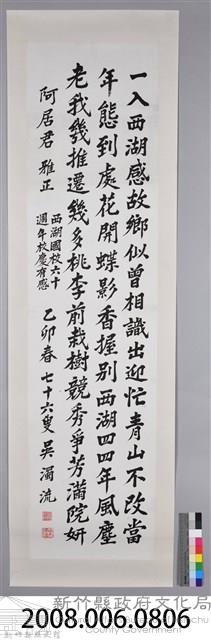 一入西湖感故鄉似曾相識出迎忙青山不改當
年態到處花開蝶影香握別西湖四四年風塵
老我幾推遷幾多桃李前栽樹競秀爭芳滿院妍
阿居君 雅正
西湖國校六十
週年校慶有感
乙卯春 七十六叟 吳濁流
新竹縣政府文化局
County Government
2008.006.0806